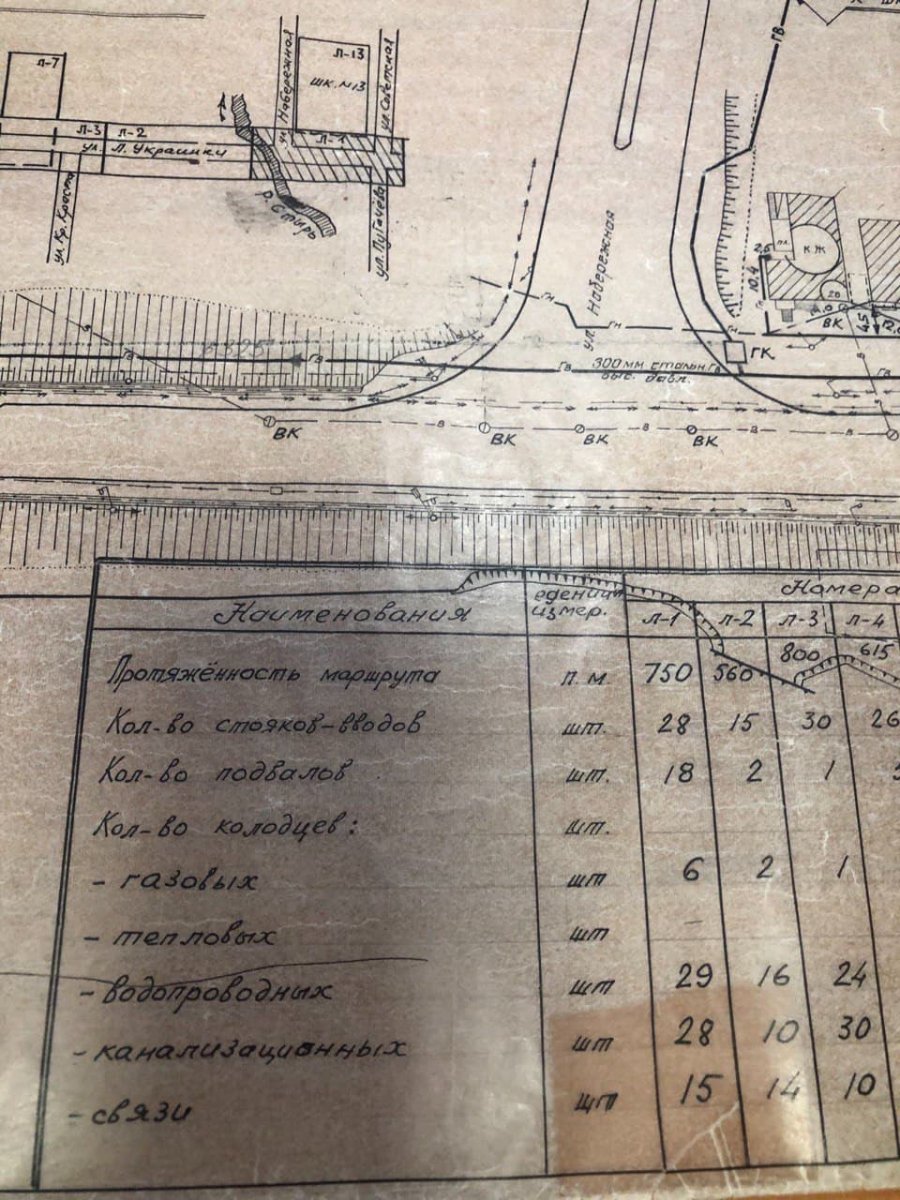 ГВ
л-7
ул. Набережная
Л-13
шк. №13
ул. Советская
л-3
л-2
Л-1
ул. Л. Украинки
р. Стырь
ул. Кр. Креста
ул. Пугачёва
ул. Набережная
К.Ж
10,4
ГН
ГН
ВК
ГК
6325
ГВ
ГВ
300 мм стальн.
выс. давл.
ГВ
ГВ
ГВ
ВК
ВК
ВК
ВК
В
В
В
Наименования
едениц
измер.
Намера
л-1
л-2
л-3
л-4
Протяжённость маршрута п.м 750 560 800 615
Кол-во стояков-вводов шт. 28 15 30 26
Кол-во подвалов шт. 18 2 1
Кол-во колодцев: шт.
- газовых шт 6 2 1
- тепловых шт –
- водопроводных шт 29 16 24
- канализационных шт 28 10 30
- связи шт 15 14 10